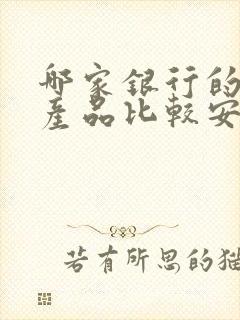 哪家銀行的
產品比較安
若有所思的猫